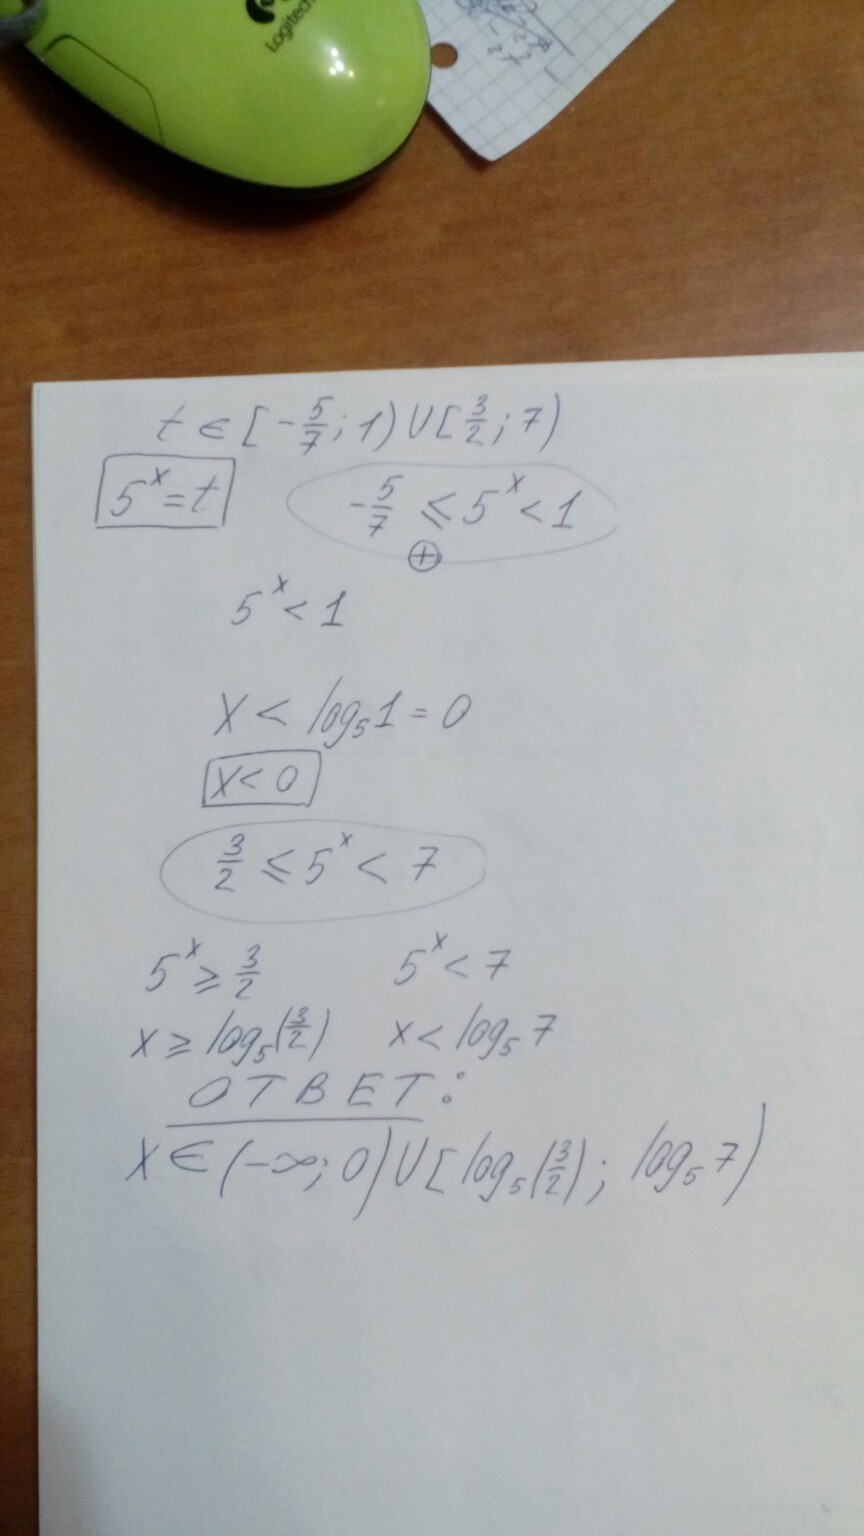 Logitech
t ∈ [-5/7; 1) ∪ [3/2; 7)
5^x = t
-5/7 ≤ 5^x < 1
⊕
5^x < 1
x < log₅1 = 0
x < 0
3/2 ≤ 5^x < 7
5^x ≥ 3/2 5^x < 7
x ≥ log₅(3/2) x < log₅7
ОТВЕТ:
x ∈ (-∞; 0) ∪ [log₅(3/2); log₅7)